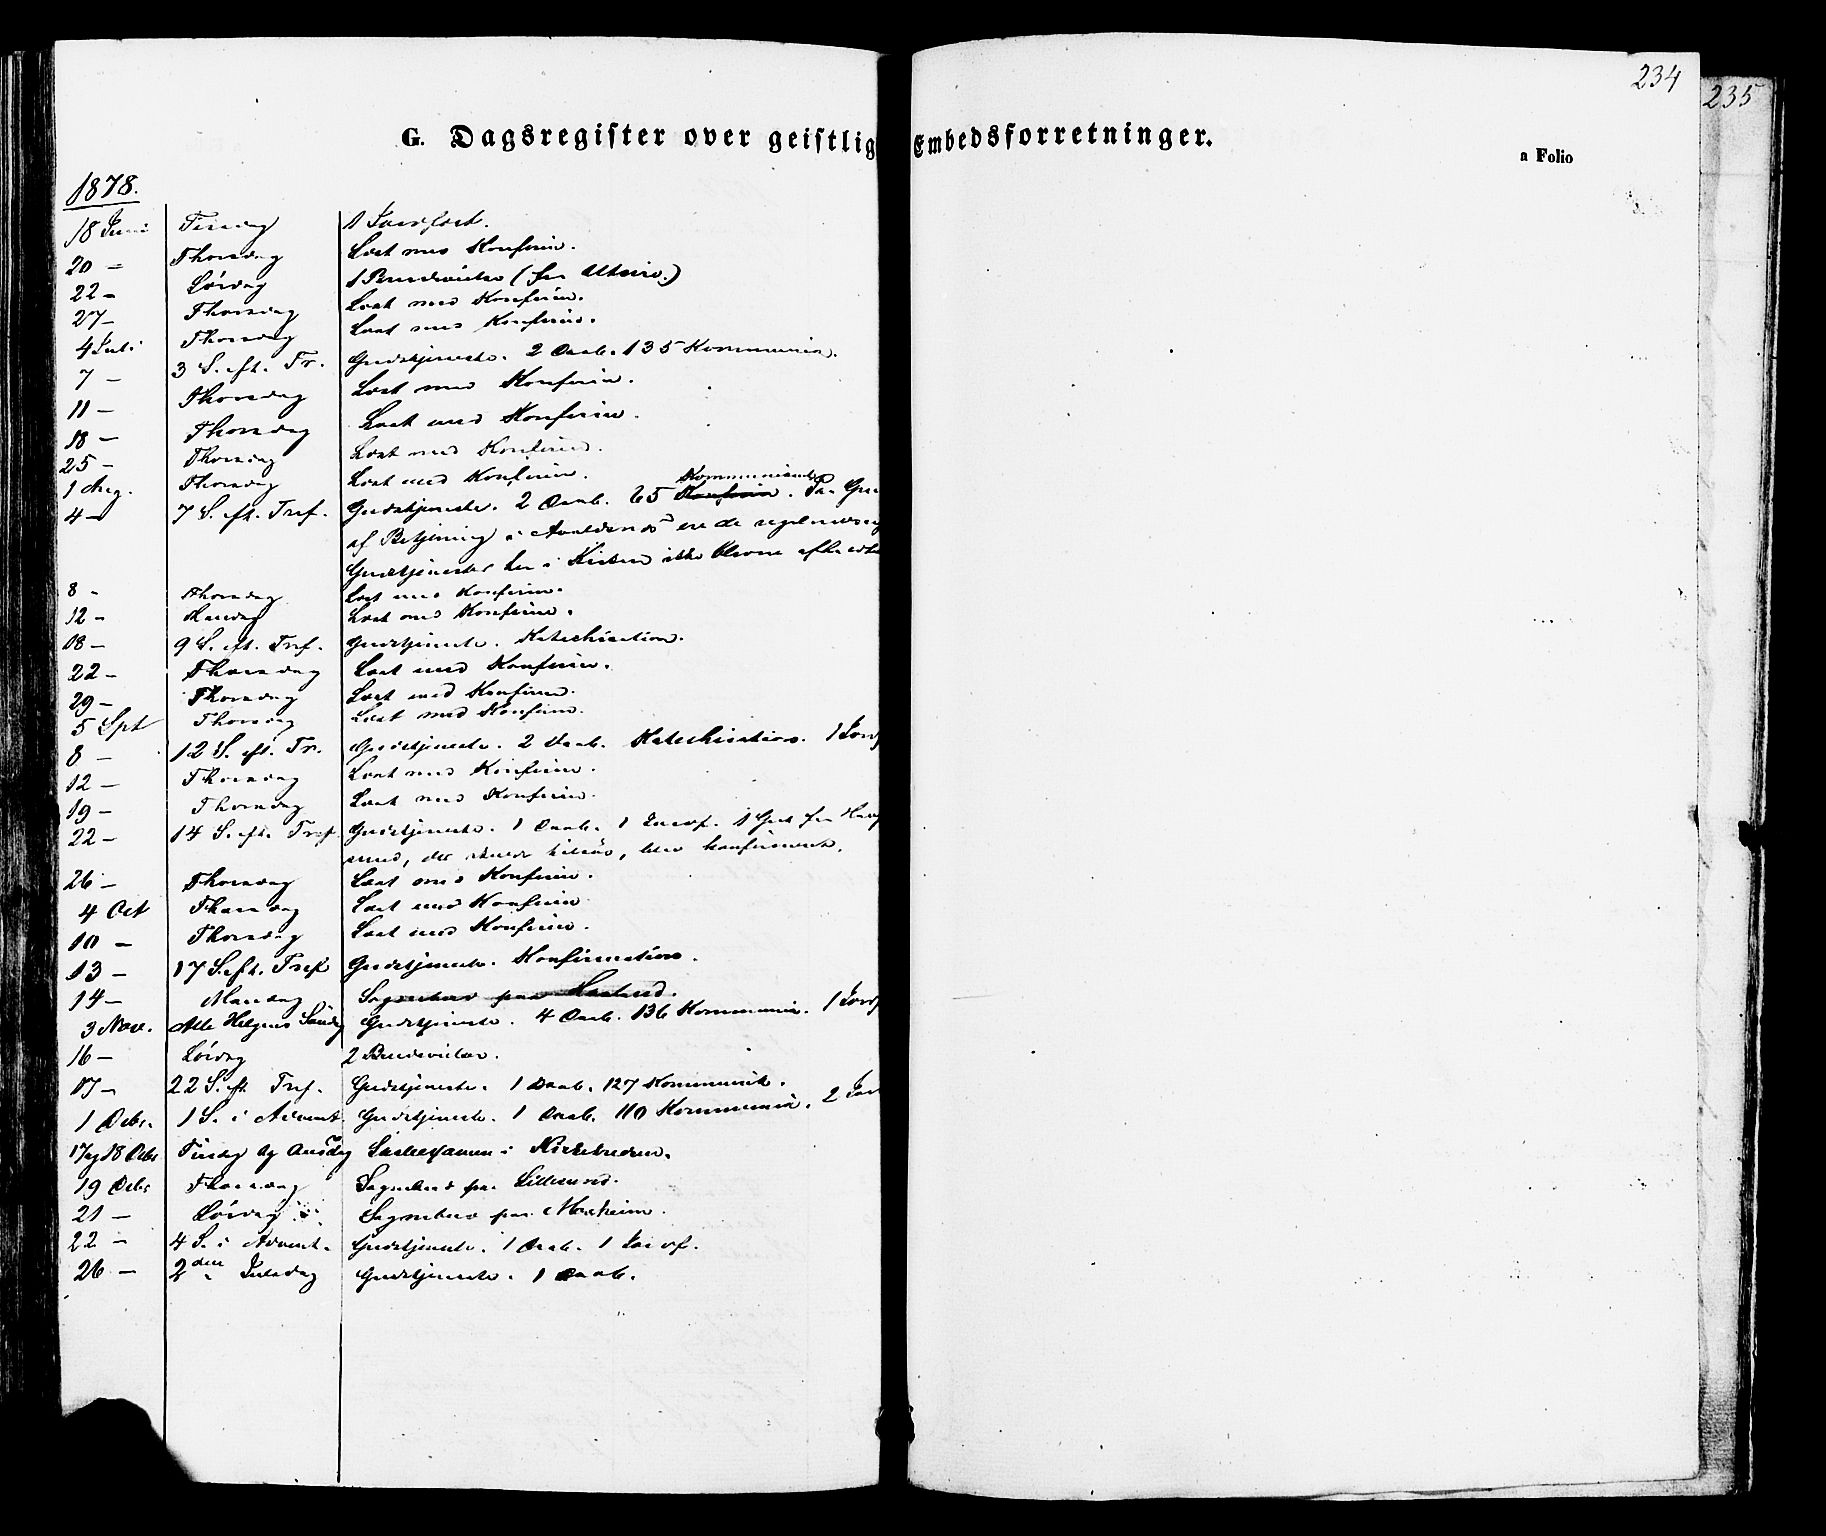 234
235
G. Dagsregister over geistlig Embedsforretninger.
a Folio
1878.
18 Juni Tirsdag 1 Jordfæst.
20 - Thorsdag Læst med Konfirm.
22 - Lørdag 1 Brudevielse (fra
27 - Thorsdag Læst med Konfirm.
4 Juli Thorsdag Læst med Konfirm.
7 - 3 S. eft. Tr. Gudstjeneste. 2 Daab. 135 Kommunik.
11 - Thorsdag Læst med Konfirm.
18 - Thorsdag Læst med Konfirm.
25 - Thorsdag Læst med Konfirm.
1 Aug. Thorsdag Læst med Konfirm.
Kommunikanter
4 - 7 S. eft. Tref. Gudstjeneste. 2 Daab. 65 Konfirm. Paa Gru
af Betjening i Avaldsnæs ere de regelmæssig
Gudstjenester her i Kirken ikke blevne afholdte
8 - Thorsdag Læst med Konfirm.
12 - Mandag Læst med Konfirm.
18 - 9 S. eft. Tref. Gudstjeneste. Katechisation.
22 - Thorsdag Læst med Konfirm.
29 - Thorsdag Læst med Konfirm.
5 Spt Thorsdag Læst med Konfirm.
8 - 12 S. eft. Tr. Gudstjeneste. 2 Daab. Katechisation. 1 Jordf
12 - Thorsdag Læst med Konfirm.
19 - Thorsdag Læst med Konfirm.
22 - 14 S. eft. Tref. Gudstjeneste. 1 Daab. 1 Jordf. 1 Gut fra
sund, der skulde tilsøs, blev konfirmeret.
26 - Thorsdag Læst med Konfirm.
4 Oct Thorsdag Læst med Konfirm.
10 - Thorsdag Læst med Konfirm.
13 - 17 S. eft. Tref Gudstjeneste. Konfirmation.
14 - Mandag Sognebud paa
3 Nov. Alle Helgens Søndag Gudstjeneste. 4 Daab. 136 Kommunik. 1 Jordf
16 - Lørdag 2 Brudevielser.
17 - 22 S. eft. Tref. Gudstjeneste. 1 Daab. 127 Kommunik.
1 Debr. 1 S. i Advent. Gudstjeneste. 1 Daab. 110 Kommunik. 2 Jor
17 og 18 Debr Tirsdag og Onsdag Skoleexamen i Kirkekredsen.
19 Debr Thorsdag Sognebud paa Lillesund.
21 - Lørdag Sognebud paa Norheim.
22 - 4 S. i Advent. Gudstjeneste. 1 Daab. 1 Jordf.
26 - 2den Juledag Gudstjeneste. 1 Daab.